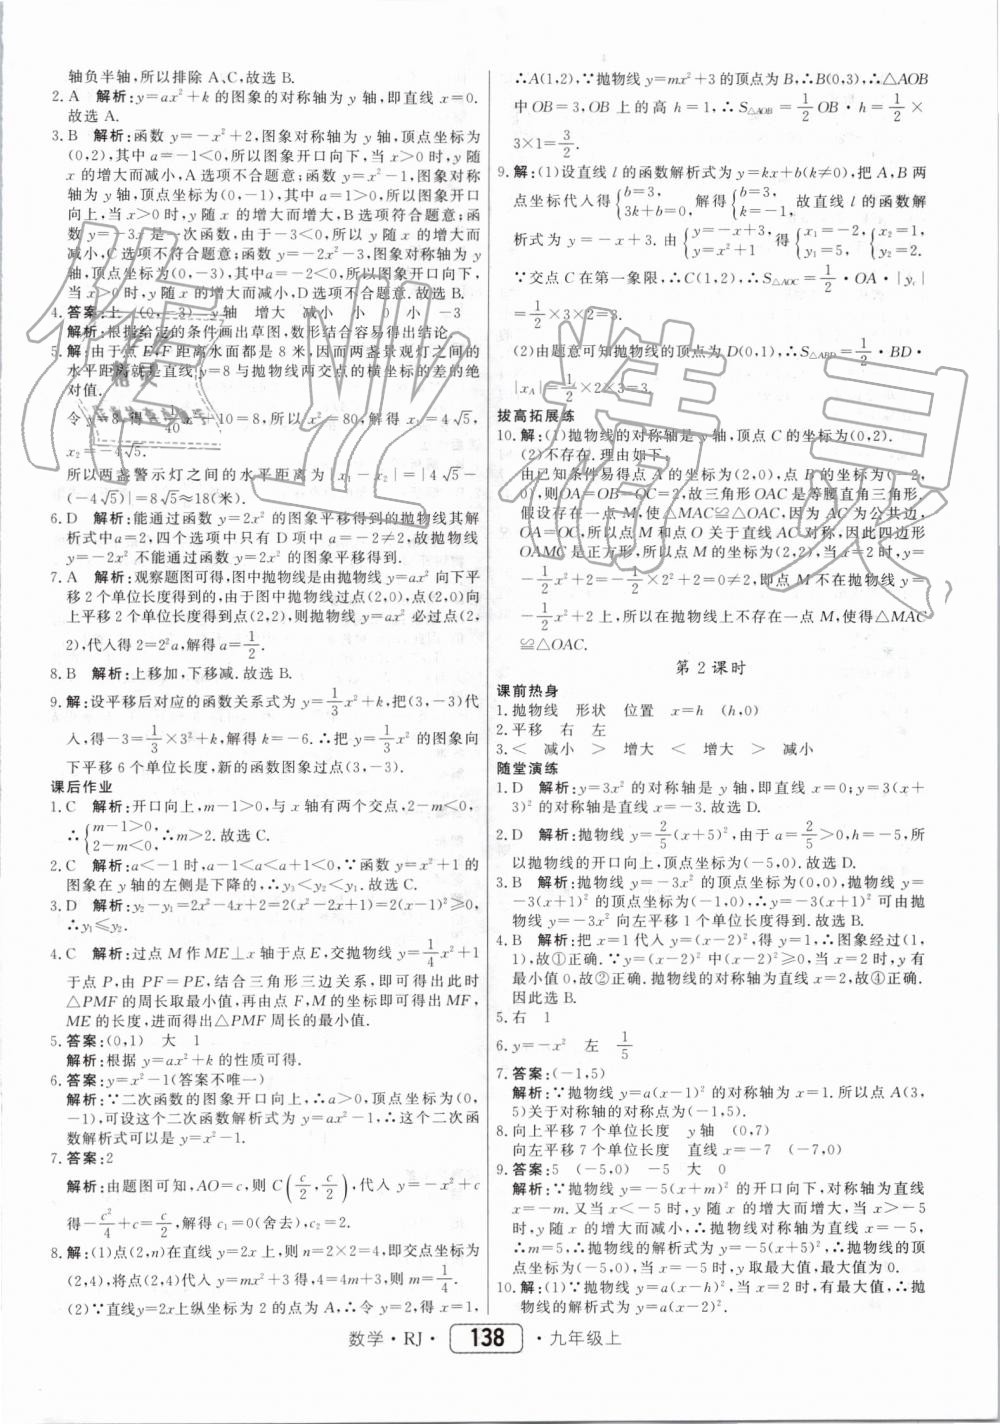 轴负半轴,所以排除 A、C,故选 B.
2. A 解析:y=ax²+k 的图象的对称轴为 y 轴,即直线 x=0.
故选 A.
3. B 解析:函数 y=-x²+2,图象对称轴为 y 轴,顶点坐标为
(0,2),其中 a=-1<0,所以图象开口向下,当 x>0 时,y 随
x 的增大而减小,A 选项不符合题意;函数 y=x²-1,图象对
称轴为 y 轴,顶点坐标为(0,-1),其中 a=1>0,所以图象开口
向上,当 x>0 时,y 随 x 的增大而增大,B 选项符合题意;函
数 y=-3x 是一次函数,由于-3<0,所以 y 随 x 的增大而
减小,C 选项不符合题意;函数 y=-2x²-3,图象对称轴为 y
轴,顶点坐标为(0,-3),其中 a=-2<0,所以图象开口向下,
当 x>0 时,y 随 x 的增大而减小,D 选项不符合题意.故选 B.
4. 答案:上 (0,-3) y 轴 增大 减小 小 0 小 -3
解析:根据给定的条件画出草图,数形结合容易得出结论.
5. 解:由于点 E、F 距离水面都是 8 米,因而两盏景观灯之间的
水平距离就是直线 y=8 与抛物线两交点的横坐标的差的绝
对值.
令 y=8,得 8=-1/40 x²+10=8,所以 x²=80,解得 x₁=4√5,
x₂=-4√5.
所以两盏警示灯之间的水平距离为|x₁-x₂|=|4√5-
(-4√5)|=8√5≈18(米).
6. D 解析:能通过函数 y=2x² 的图象平移得到的抛物线其解
析式中 a=2,四个选项中只有 D 项中 a=-2≠2,故抛物线
y=-2x² 不能通过函数 y=2x² 的图象平移得到.
7. A 解析:观察题图可得,图中抛物线是由抛物线 y=ax² 向下平
移 2 个单位长度得到的,由于图中抛物线过点(2,0),点(2,0)向
上平移 2 个单位长度得到点(2,2),则抛物线 y=ax² 必过点(2,
2),代入得 2=2²a,解得 a=1/2.
8. B 解析:上移加,下移减.故选 B.
9. 解:设平移后对应的函数关系式为 y=1/3x²+k,把(3,-3)代
入,得-3=1/3×3²+k,解得 k=-6.∴把 y=1/3x² 的图象向
下平移 6 个单位长度,新的函数图象过点(3,-3).
课后作业
1. C 解析:开口向上,m-1>0,与 x 轴有两个交点,2-m<0,
∴{m-1>0, 2-m<0, ∴m>2.故选 C.
2. C 解析:a<-1 时,a-1<a<a+1<0,∵函数 y=x²+1 的
图象在 y 轴的左侧是下降的,∴y₃<y₂<y₁.故选 C.
3. D 解析:y₂-y₁=2x²-4x+2=2(x²-2x+1)=2(x-1)²≥0,
∴y₁≤y₂.
4. C 解析:过点 M 作 ME⊥x 轴于点 E,交抛物线 y=1/4x²+1
于点 P,由 PF=PE,结合三角形三边关系,即可得出此时
△PMF 的周长取最小值,再由点 F,M 的坐标即可得出 MF,
ME 的长度,进而得出△PMF 周长的最小值.
5. 答案:(0,1) 大 1
解析:根据 y=ax²+k 的性质可得.
6. 答案:y=x²-1(答案不唯一)
解析:∵二次函数的图象开口向上,∴a>0,顶点坐标为(0,
-1),可设这个二次函数解析式为 y=ax²-1,∴这个二次函
数解析式可以是 y=x²-1.
7. 答案:2
解析:由题图可知,AO=c,则 C(c/2,c/2),代入 y=-x²+c
得-c²/4+c=c/2,解得 c₁=0(舍去),c₂=2.
8. 解:(1)点(2,n)在直线 y=2x 上,则 n=2×2=4,即交点坐标为
(2,4),将点(2,4)代入 y=mx²+3 得,4m+3=4,则 m=1/4.
(2)∵直线 y=2x 上纵坐标为 2 的点为 A,∴令 y=2,得 x=1,
∴A(1,2),∵抛物线 y=mx²+3 的顶点为 B,∴B(0,3),∴△AOB
中 OB=3,OB 上的高 h=1,∴S△AOB=1/2OB·h=1/2×
3×1=3/2.
9. 解:(1)设直线 l 的函数解析式为 y=kx+b(k≠0),把 A,B 两
点坐标代入得{b=3, 3k+b=0, 解得{b=3, k=-1, 故直线 l 的函数解
析式为 y=-x+3.由{y=-x+3, y=x²+1 得{x₁=-2, y₁=5, {x₂=1, y₂=2.
∵交点 C 在第一象限,∴C(1,2),∴S△AOC=1/2·OA·|y_c|=
1/2×3×2=3.
(2)由题意可知抛物线的顶点为 D(0,1),∴S△ABD=1/2·BD·
|x_A|=1/2×2×3=3.
拔高拓展练
10. 解:(1)抛物线的对称轴是 y 轴,顶点 C 的坐标为(0,2).
(2)不存在.理由如下:
由已知条件易得点 A 的坐标为(2,0),点 B 的坐标为(-2,
0),则 OA=OB=OC=2,故三角形 OAC 是等腰直角三角形.
假设存在一点 M,使△MAC≌△OAC,因为 AC 为公共边,
OA=OC,所以点 M 和点 O 关于直线 AC 对称,即四边形
OAMC 是正方形,所以点 M 的坐标为(2,2),当 x=2 时,y=
-1/2x²+2=-1/2×2²+2=0≠2,即点 M 不在抛物线 y=
-1/2x²+2 上,所以在抛物线上不存在一点 M,使得△MAC
≌△OAC.
第 2 课时
课前热身
1. 抛物线 形状 位置 x=h (h,0)
2. 平移 右 左
3. < 减小 > 增大 < 增大 > 减小
随堂演练
1. D 解析:抛物线 y=3x² 的对称轴是 y 轴,即直线 x=0;y=3(x+
3)² 的对称轴是直线 x=-3.故选 D.
2. D 解析:抛物线 y=2/5(x+5)²,由于 a=2/5>0,h=-5,所
以抛物线的开口向上,顶点坐标为(-5,0).故选 D.
3. B 解析:抛物线 y=-3x² 的顶点坐标为(0,0),抛物线 y=
-3(x+1)² 的顶点坐标为(-1,0),∴y=-3(x+1)² 可由抛
物线 y=-3x² 向左平移 1 个单位长度得到.故选 B.
4. B 解析:把 x=1 代入 y=(x-2)²,得 y=1,∴图象经过(1,
1),故①正确.∵y=(x-2)² 中(x-2)²≥0,当 x=2 时,y 有
最小值 0,故②正确.抛物线的对称轴为直线 x=2,故④正确.
因此选 B.
5. 右 1
6. y=-x² 左 1/5
7. 答案:(-1,5)
解析:∵抛物线 y=a(x-1)² 的对称轴为 x=1.所以点 A(3,
5)关于对称轴的对称点为(-1,5).
8. 向上平移 7 个单位长度 y 轴 (0,7)
向左平移 7 个单位长度 直线 x=-7 (-7,0)
9. 答案:5 (-5,0) -5 大 0
解析:∵抛物线 y=-5(x+m)² 的开口向下,对称轴为直线
x=-m.又当 x<-5 时,y 随 x 的增大而增大,当 x>-5
时,y 随 x 的增大而减小,∴抛物线对称轴为直线 x=-5,
∴m=5,∴抛物线的解析式为 y=-5(x+5)²,∴抛物线的顶
点坐标为(-5,0),当 x=-5 时,y 取最大值,最大值为 0.
10. 解:(1)∵抛物线 y=a(x-h)²,当 x=2 时,有最大值,∴抛
物线的解析式为 y=a(x-2)².
数学·RJ· 138 ·九年级上